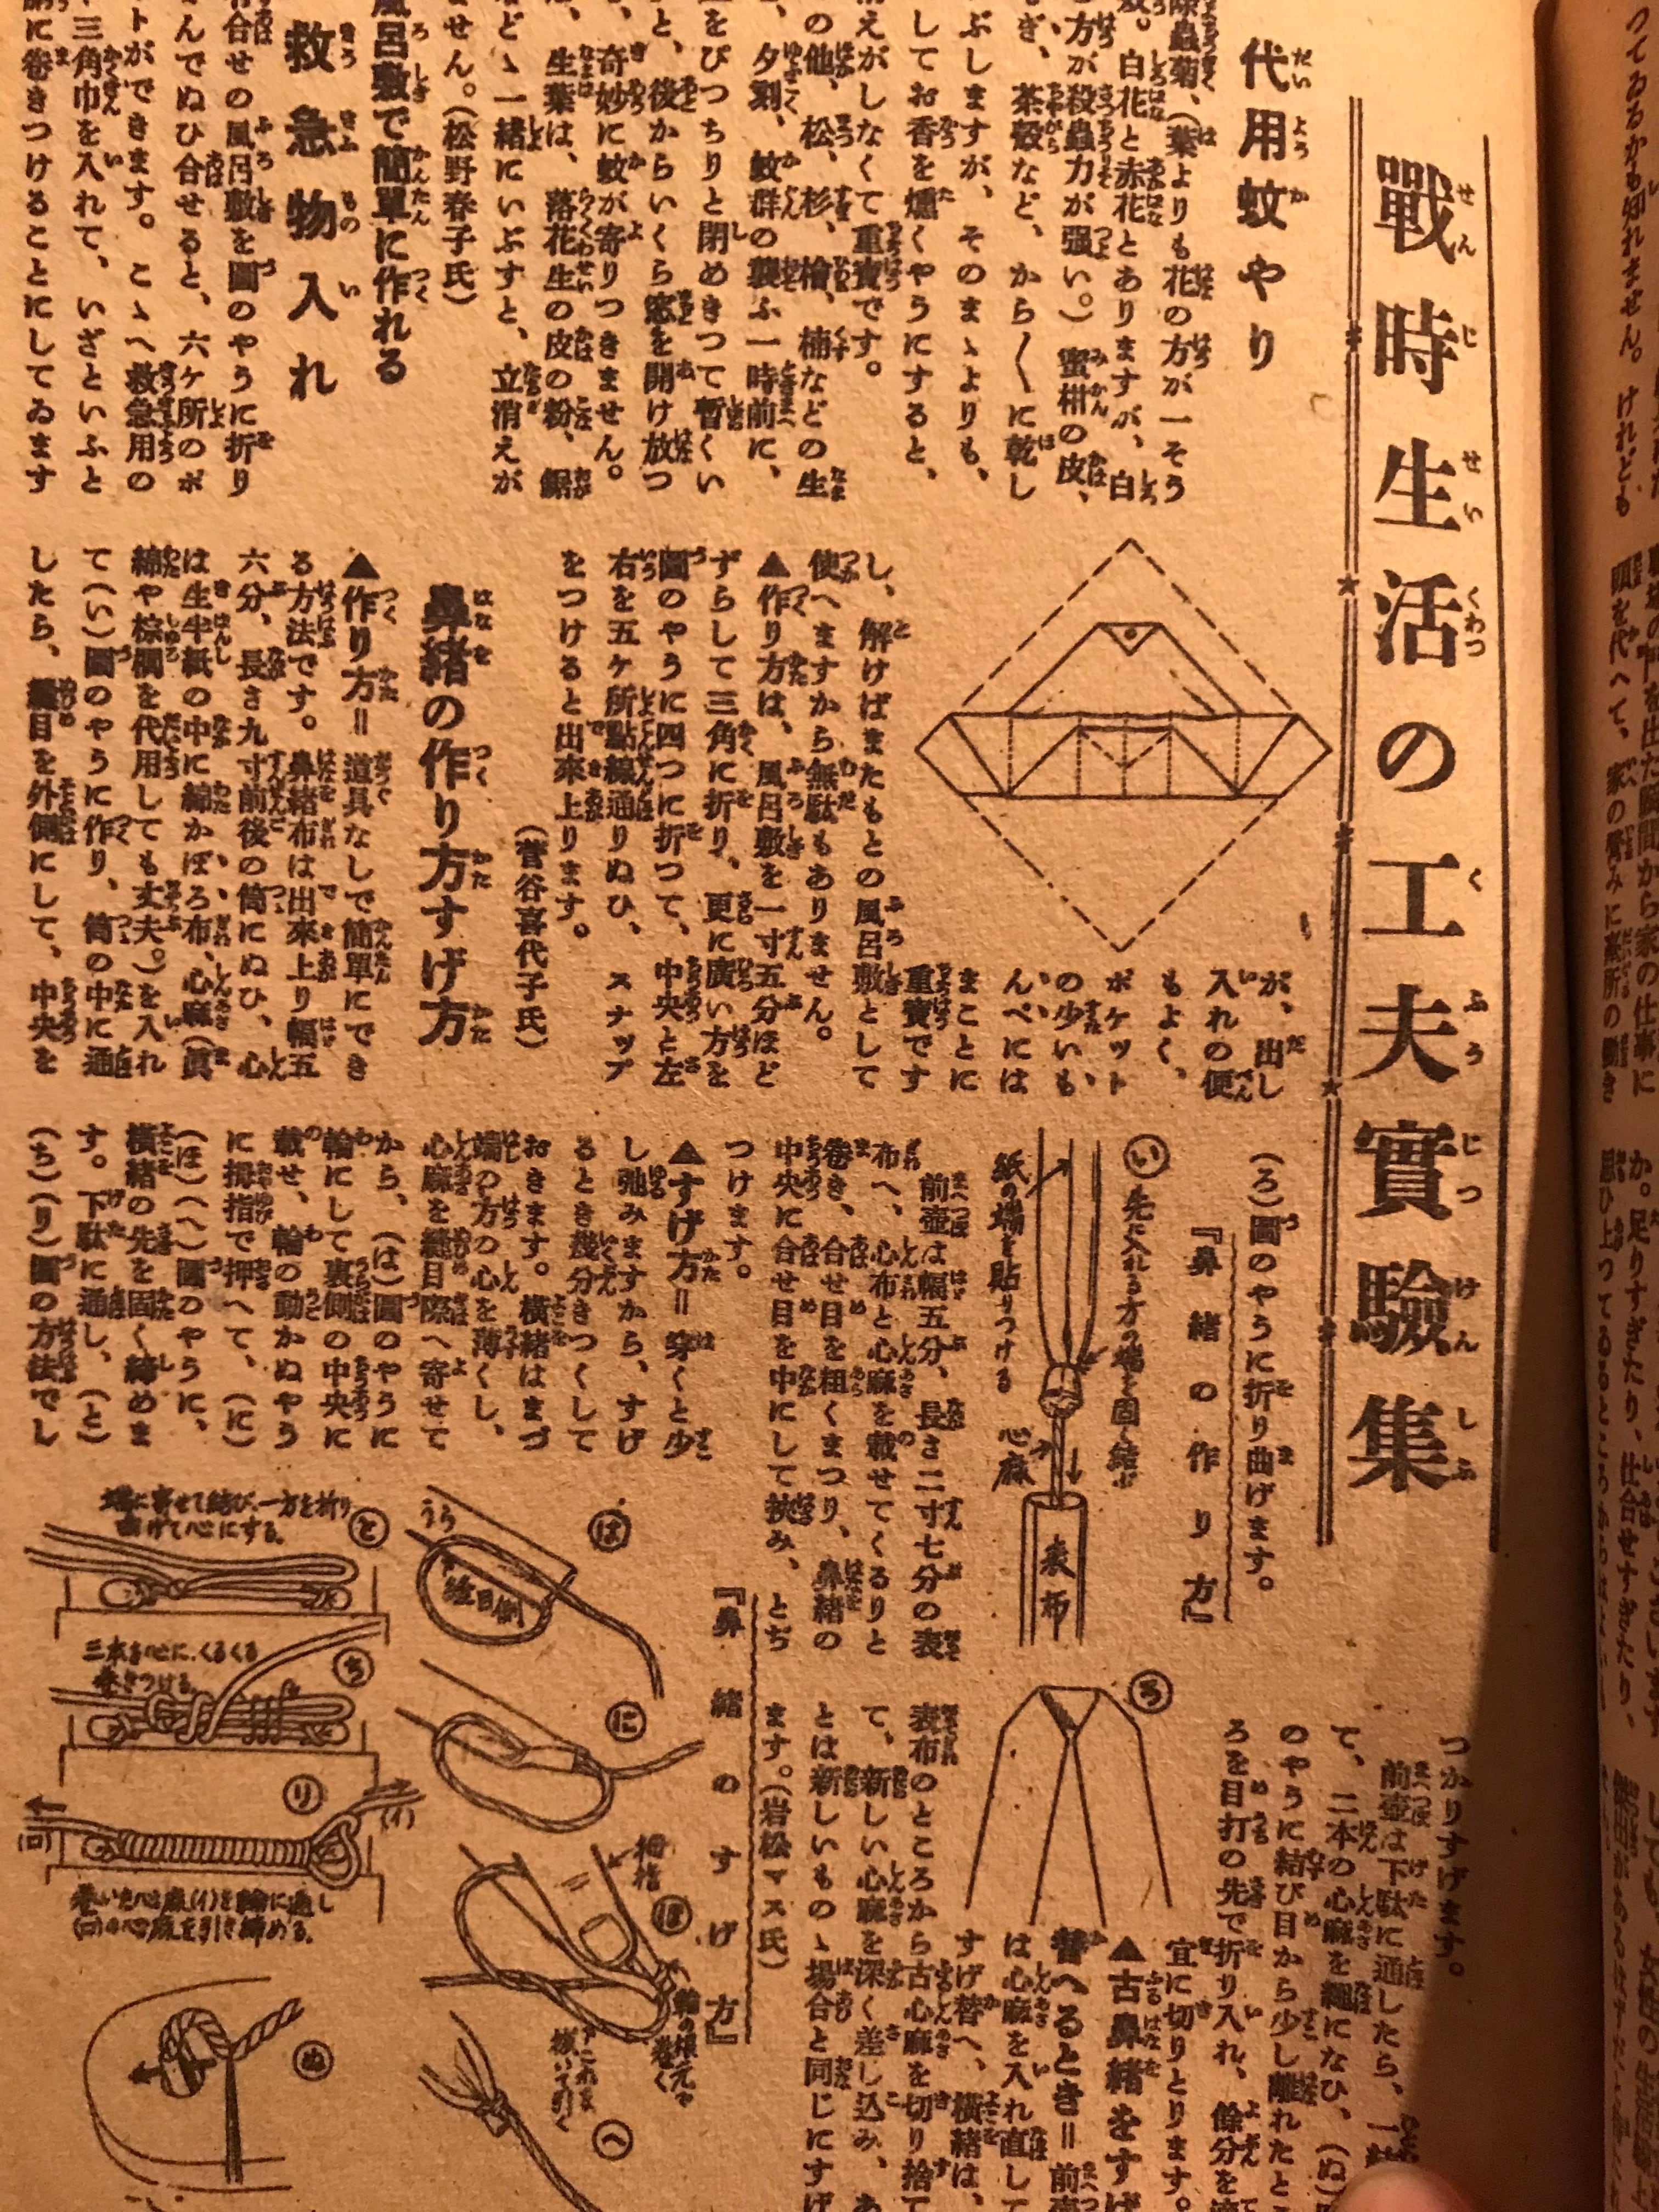 戰時生活の工夫實驗集
代用蚊やり
除蟲菊、(葉よりも花の方が一そう
白花と赤花とありますが、白
方が殺蟲力が强い。)蜜柑の皮、
茶殻など、から〱に乾し
ぶしますが、そのまゝよりも、
してお香を燻くやうにすると、
えがしなくて重寶です。
の他、松、杉、檜、楠などの生
夕刻、蚊群の襲ふ一時前に、
をぴつちりと閉めきつて暫くい
と、後からいくら窓を開け放つ
奇妙に蚊が寄りつきません。
生葉は、落花生の皮の粉、鋸
ど、一緖にいぶすと、立消えが
せん。(松野春子氏)
風呂敷で簡單に作れる
救急物入れ
合せの風呂敷を圖のやうに折り
んでぬひ合せると、六ケ所のポ
トができます。こゝへ救急用の
三角巾を入れて、いざといふと
に卷きつけることにしてゐます
が、出し
入れの便
もよく、
ポケット
の少いも
んぺには
まことに
重寶です
し、解けばまたもとの風呂敷として
使へますから無駄もありません。
▲作り方は、風呂敷を一寸五分ほど
ずらして三角に折り、更に廣い方を
圖のやうに四つに折つて、中央と左
右を五ケ所點線通りぬひ、スナップ
をつけると出來上ります。
(菅谷喜代子氏)
鼻緖の作り方すげ方
▲作り方=道具なしで簡單にでき
る方法です。鼻緖布は出來上り幅五
六分、長さ九寸前後の筒にぬひ、心
は生半紙の中に綿かぼろ布、心麻(眞
綿や棕櫚を代用しても丈夫。)を入れ
て(い)圖のやうに作り、筒の中に通
したら、縫目を外側にして、中央を
(ろ)圖のやうに折り曲げます。
『鼻緖の作り方』
い
先に入れる方の端を固く結ぶ
紙の端を貼りつける
心麻
表布
ろ
前壺は幅五分、長さ二寸七分の表
布へ、心布と心麻を載せてくるりと
卷き、合せ目を粗くまつり、鼻緖の
中央に合せ目を中にして挾み、とぢ
つけます。
▲すげ方=穿くと少
し弛みますから、すげ
るとき幾分きつくして
おきます。橫緖はまづ
端の方の心を薄くし、
心麻を縫目際へ寄せて
から、(は)圖のやうに
輪にして裏側の中央に
載せ、輪の動かぬやう
に拇指で押へて、(に)
(ほ)(へ)圖のやうに、
橫緖の先を固く締めま
す。下駄に通し、(と)
(ち)(り)圖の方法でし
つかりすげます。
前壺は下駄に通したら、一
て、二本の心麻を繩になひ、(ぬ)
のやうに結び目から少し離れたとこ
ろを目打の先で折り入れ、餘分を
宜に切りとります。
▲古鼻緖をすげ
替へるとき=前壺
は心麻を入れ直して
すげ替へ、橫緖は、
表布のところから古心麻を切り捨て
て、新しい心麻を深く差し込み、あ
とは新しいものゝ場合と同じにすげ
ます。(岩松マス氏)
『鼻緖のすげ方』
は
うら
縫目側
に
ほ
拇指
輪の根元を卷く
これを拔いて引く
へ
と
端に寄せて結び、一方を折り
曲げて心にする。
ち
三本を心に、くるくる
卷きつける。
り
(イ)
(ロ)
卷いた心麻(イ)を輪に通し
(ロ)の心麻を引き締める。
ぬ